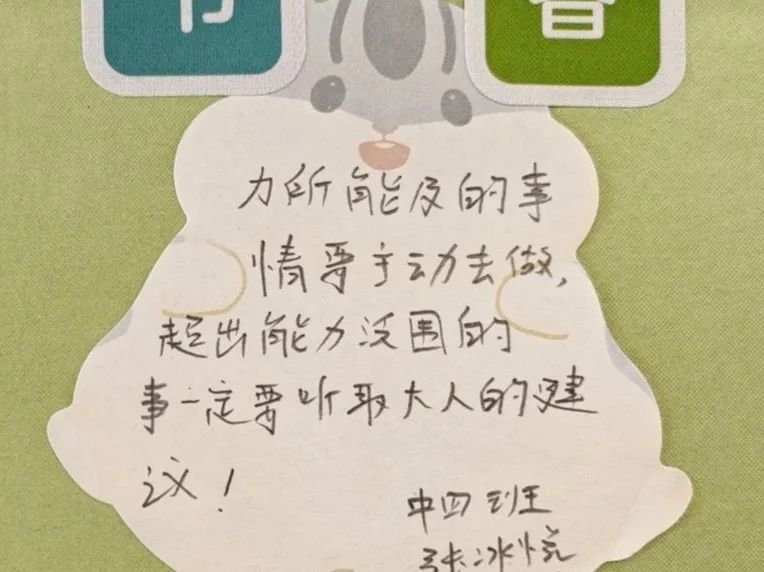 力所能及的事
情要主动去做,
超出能力泛围的
事一定要听取大人的建
议!
中四班
张冰悦